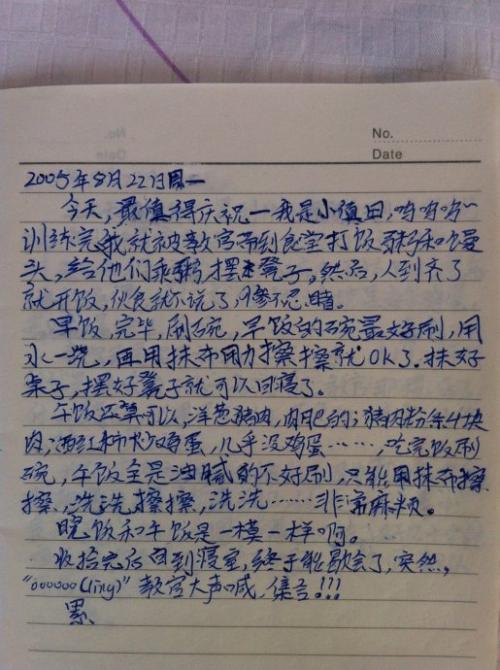 No.
Date
2005年8月22日周一
今天,最值得庆祝—我是小值日,呜呜呜~
训练完我就被教官带到食堂打饭粥和馒
头,给他们乘粥,摆凳子。然后,人到齐了
就开饭,伙食就不说了,惨不忍睹。
早饭,完毕,刷碗,早饭的碗最好刷,用
水一浇,再用抹布用力擦擦就OK了.抹好
桌子,摆好凳子就可以回寝了。
午饭还算可以,洋葱猪肉,肉肥的;猪肉粉条4块
肉;西红柿炒鸡蛋,几乎没鸡蛋……,吃完饭刷
碗,午饭全是油腻的不好刷,只能用抹布擦
擦、洗洗擦擦,洗洗……非常麻烦。
晚饭和午饭是一模一样啊。
收拾完后回到寝室,终于能歇会了,突然,
"oooooo(ling)"教官大声喊,集合!!!
累